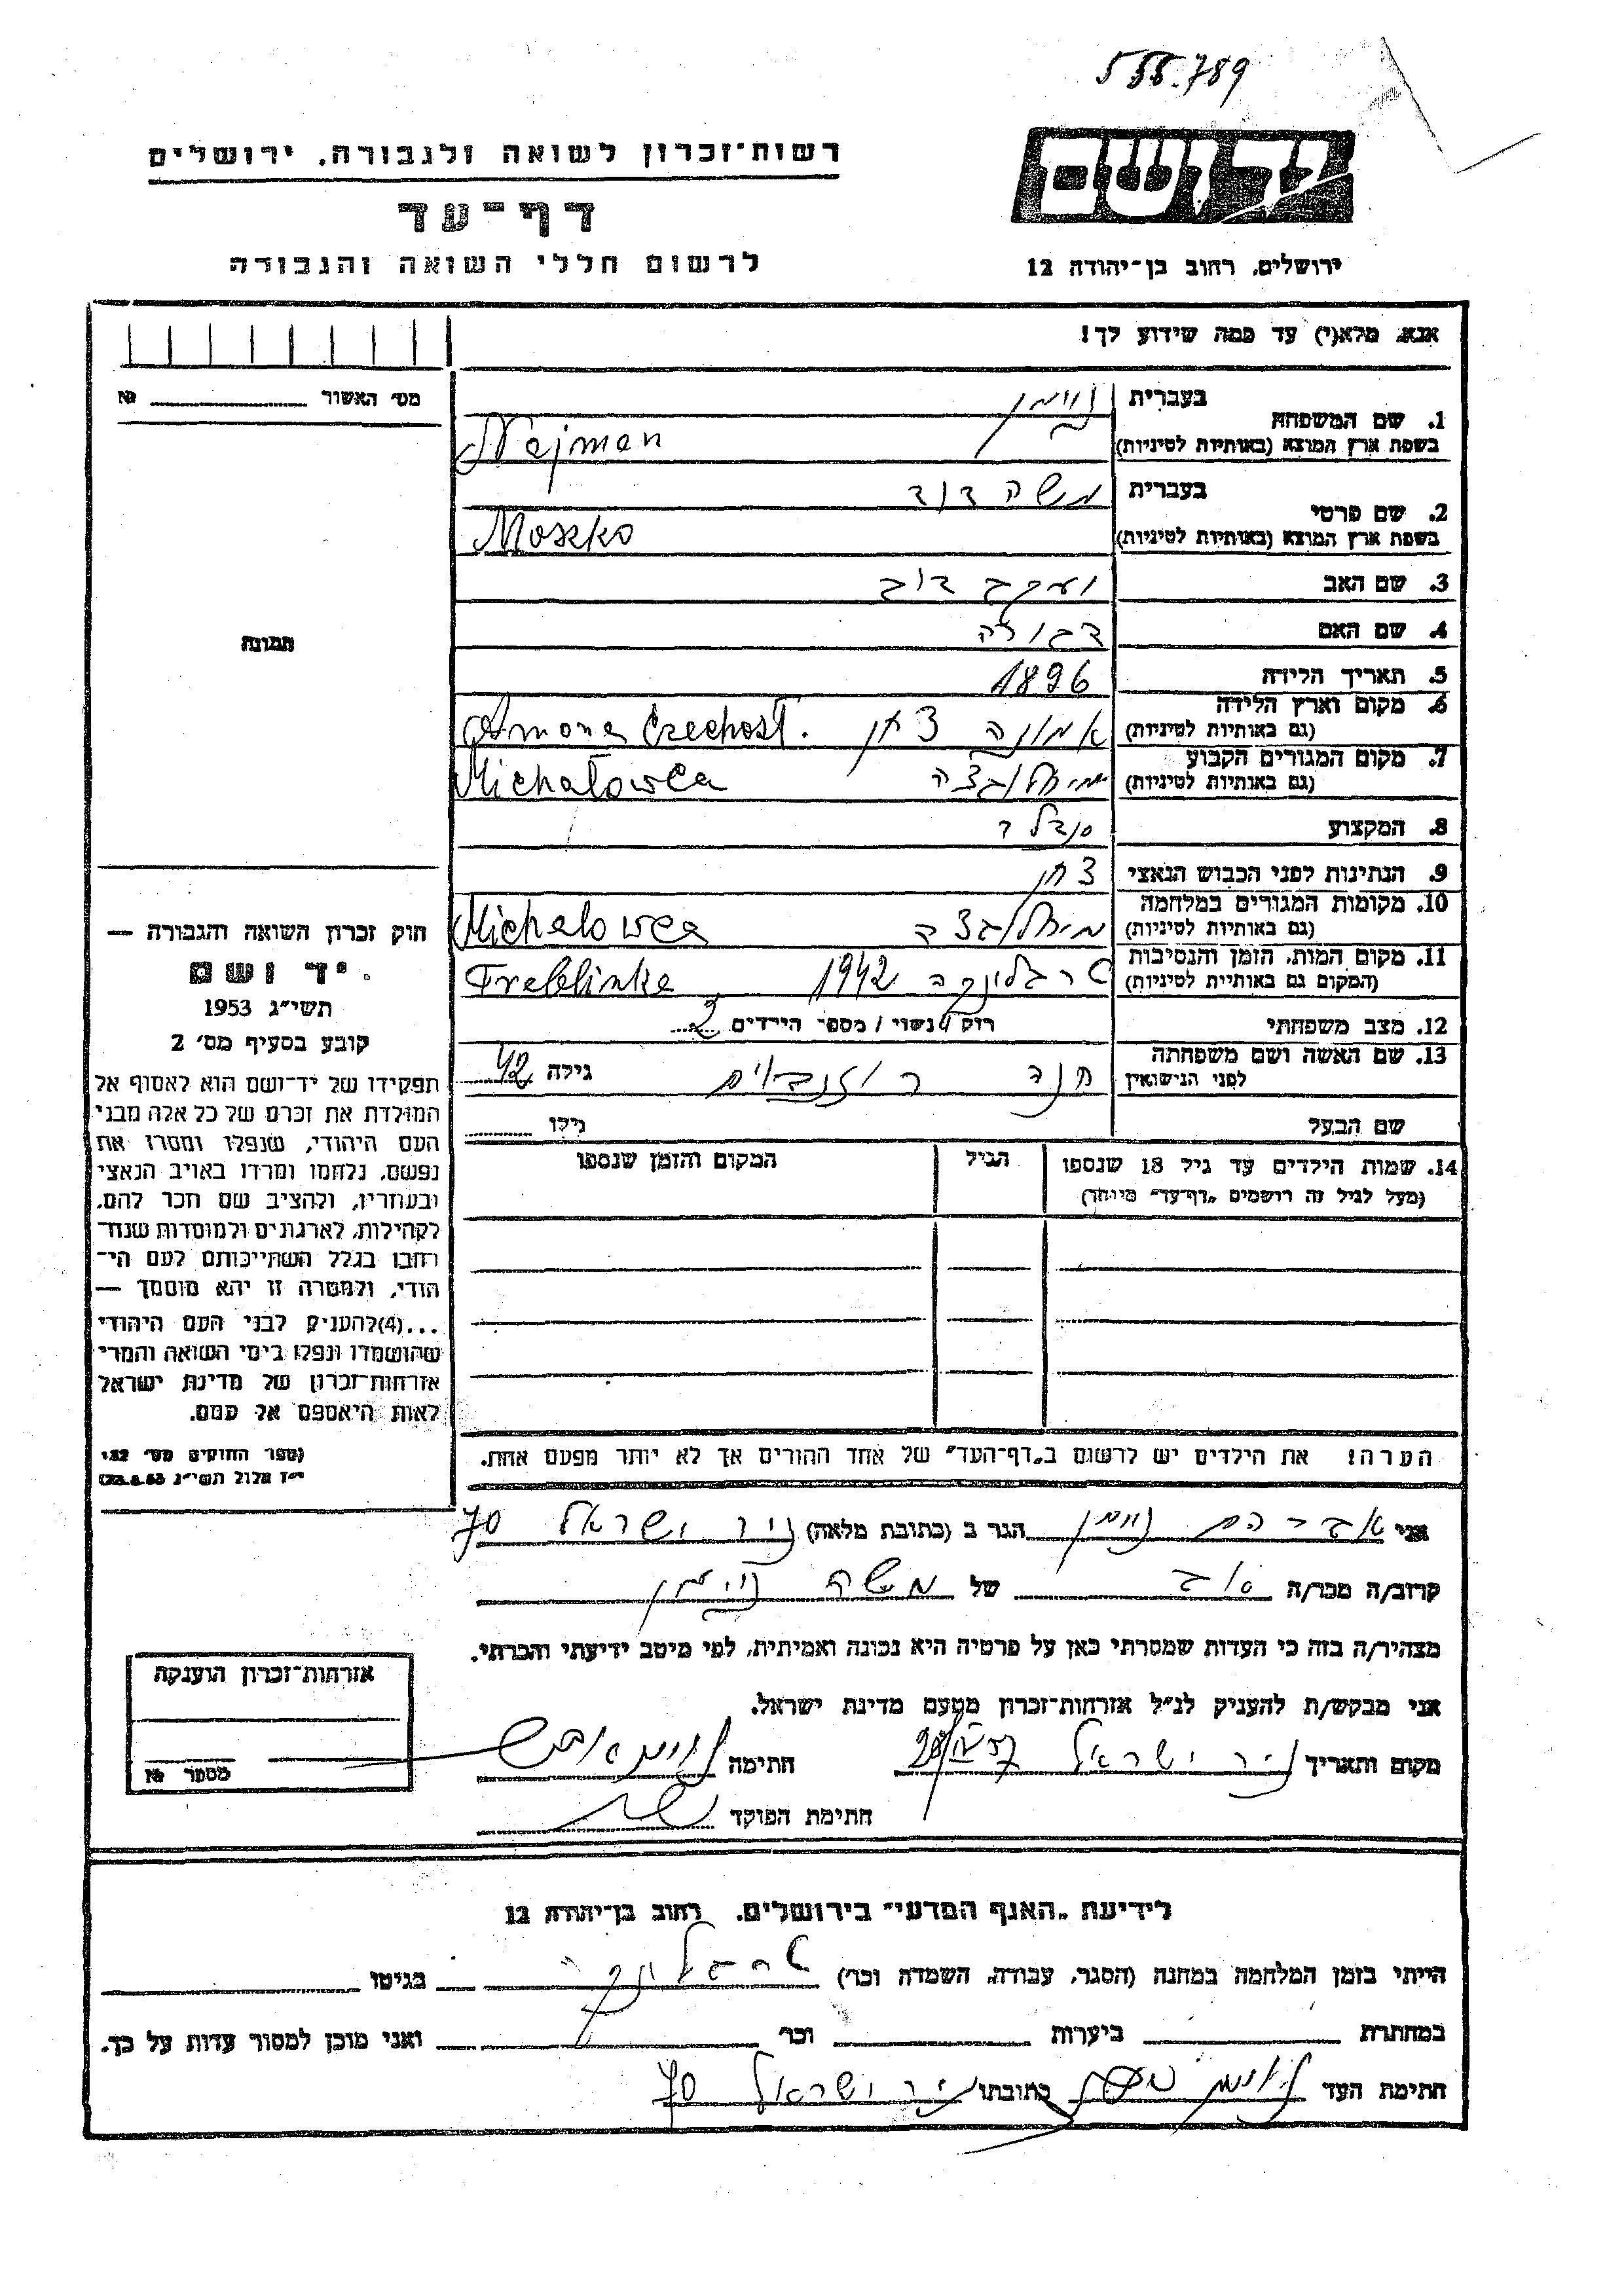 555.789
רשות־זכרון לשואה ולגבורה, ירושלים
יד ושם
דף־עד
לרשום חללי השואה והגבורה
ירושלים, רחוב בן־יהודה 12
אנא, מלא(י) עד כמה שידוע לך!
מס׳ האשור № 
1. שם המשפחה בעברית נוימן
בשפת ארץ המוצא (באותיות לטיניות) Najman
2. שם פרטי בעברית משה דוד
בשפת ארץ המוצא (באותיות לטיניות) Moszko
3. שם האב יעקב דוב
4. שם האם דבורה
תמונה
5. תאריך הלידה 1896
6. מקום וארץ הלידה
(גם באותיות לטיניות) צ׳ חן Czechosł.
7. מקום המגורים הקבוע
(גם באותיות לטיניות) מיחלובצה Michałowca
8. המקצוע סנדלר
9. הנתינות לפני הכבוש הנאצי
10. מקומות המגורים במלחמה
(גם באותיות לטיניות) מיחלובצה Michalowca
11. מקום המות, הזמן והנסיבות
(המקום גם באותיות לטיניות) טרבלינקה 1942 Trebblinka
12. מצב משפחתי רוק / נשוי / מספר הילדים 2
13. שם האשה ושם משפחתה
לפני הנישואין חנה רוזנבוים גילה 42
שם הבעל גילו
14. שמות הילדים עד גיל 18 שנספו הגיל המקום והזמן שנספו
(מעל לגיל זה רושמים „דף־עד״ מיוחד)
חוק זכרון השואה והגבורה —
יד ושם
תשי״ג 1953
קובע בסעיף מס׳ 2
תפקידו של יד־ושם הוא לאסוף אל
המולדת את זכרם של כל אלה מבני
העם היהודי, שנפלו ומסרו את
נפשם, נלחמו ומרדו באויב הנאצי
ובעוזריו, ולהציב שם וזכר להם,
לקהילות, לארגונים ולמוסדות שנח־
רבו בגלל השתייכותם לעם הי־
הודי, ולמטרה זו יהא מוסמך —
...(4)להעניק לבני העם היהודי
שהושמדו ונפלו בימי השואה והמרי
אזרחות־זכרון של מדינת ישראל
לאות היאספם אל עמם.
(ספר החוקים מס׳ 132,
י״ז אלול תשי״ג 28.8.53)
הערה! את הילדים יש לרשום ב„דף־העד״ של אחד ההורים אך לא יותר מפעם אחת.
אני אברהם נוימן הגר ב (כתובת מלאה) ניר ישראל 70
קרוב/ה מכר/ה של משה נוימן
מצהיר/ה בזה כי העדות שמסרתי כאן על פרטיה היא נכונה ואמיתית, לפי מיטב ידיעתי והכרתי.
אני מבקש/ת להעניק לנ״ל אזרחות־זכרון מטעם מדינת ישראל.
מקום ותאריך ניר ישראל חתימה
חתימת הפוקד
אזרחות־זכרון הוענקה
מספר №
לידיעת „האגף המדעי״ בירושלים, רחוב בן־יהודה 12
הייתי בזמן המלחמה במחנה (הסגר, עבודה, השמדה וכו׳) טרבלינקה בגיטו
במחתרת ביערות וכו׳ ואני מוכן למסור עדות על כך.
חתימת העד כתובתו ניר ישראל 70